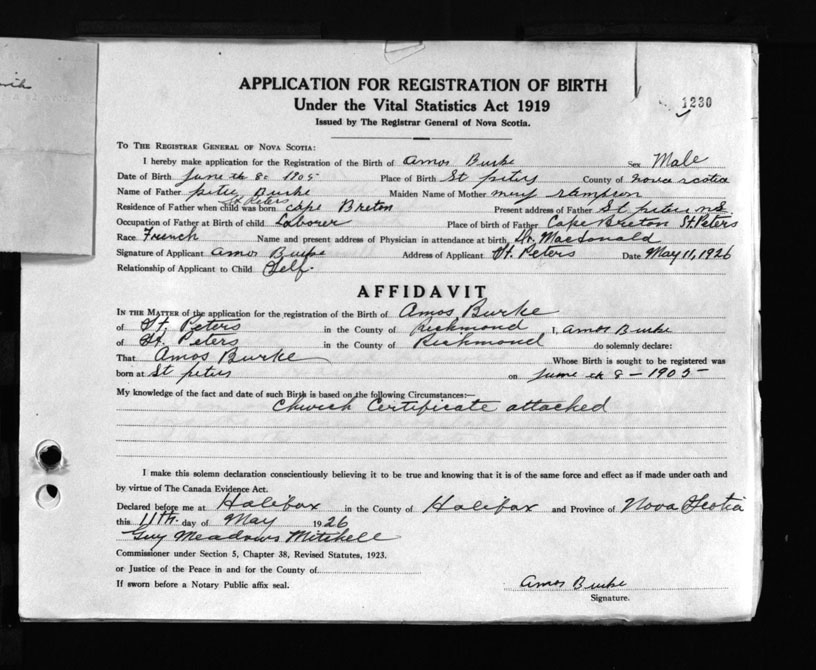 APPLICATION FOR REGISTRATION OF BIRTH
Under the Vital Statistics Act 1919
Issued by The Registrar General of Nova Scotia.
1230
To The Registrar General of Nova Scotia:
I hereby make application for the Registration of the Birth of Amos Burke Sex Male
Date of Birth June th 8. 1905 Place of Birth St peters County of nova scotia
Name of Father peter Burke Maiden Name of Mother stampson
St Peters
Residence of Father when child was born cape Breton Present address of Father St peters n S
Occupation of Father at Birth of child Laborer Place of birth of Father Cape Breton St. Peters
Race French Name and present address of Physician in attendance at birth Dr. Macdonald
Signature of Applicant Amos Burke Address of Applicant St. Peters Date May 11, 1926
Relationship of Applicant to Child Self.
AFFIDAVIT
In the Matter of the application for the registration of the Birth of Amos Burke
of St. Peters in the County of Richmond I, Amos Burke
of St. Peters in the County of Richmond do solemnly declare:
That Amos Burke Whose Birth is sought to be registered was
born at St peters on June th 8 - 1905
My knowledge of the fact and date of such Birth is based on the following Circumstances:—
Church Certificate attached
I make this solemn declaration conscientiously believing it to be true and knowing that it is of the same force and effect as if made under oath and
by virtue of The Canada Evidence Act.
Declared before me at Halifax in the County of Halifax and Province of Nova Scotia
this 11th. day of May 1926
Guy Meadows Mitchell
Commissioner under Section 5, Chapter 38, Revised Statutes, 1923.
or Justice of the Peace in and for the County of
If sworn before a Notary Public affix seal.
Amos Burke
Signature.